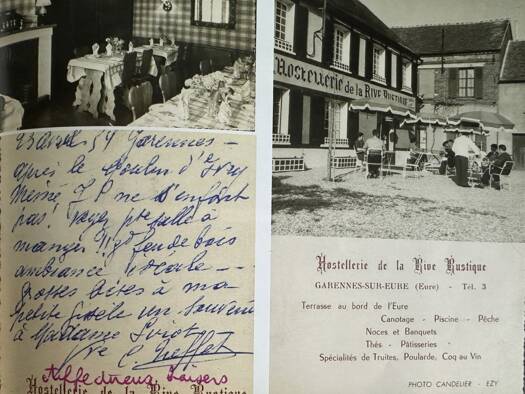 23 Avril 59 Garennes -
après le Moulin d'Ivry
même J.P ne s'enfuit
pas! Voyez salle à
manger. Gd feu de bois
ambiance idéale -
grosses bises à ma
petite Gisèle un Souvenir
à Madame
Affectueux baisers
Hostellerie de la Rive Rustique
Hostellerie de la RIVE RUSTIQUE
Hostellerie de la Rive Rustique
GARENNES-SUR-EURE (Eure) - Tél. 3
Terrasse au bord de l'Eure
Canotage - Piscine - Pêche
Noces et Banquets
Thés - Pâtisseries
Spécialités de Truites, Poularde, Coq au Vin
PHOTO CANDELIER - EZY